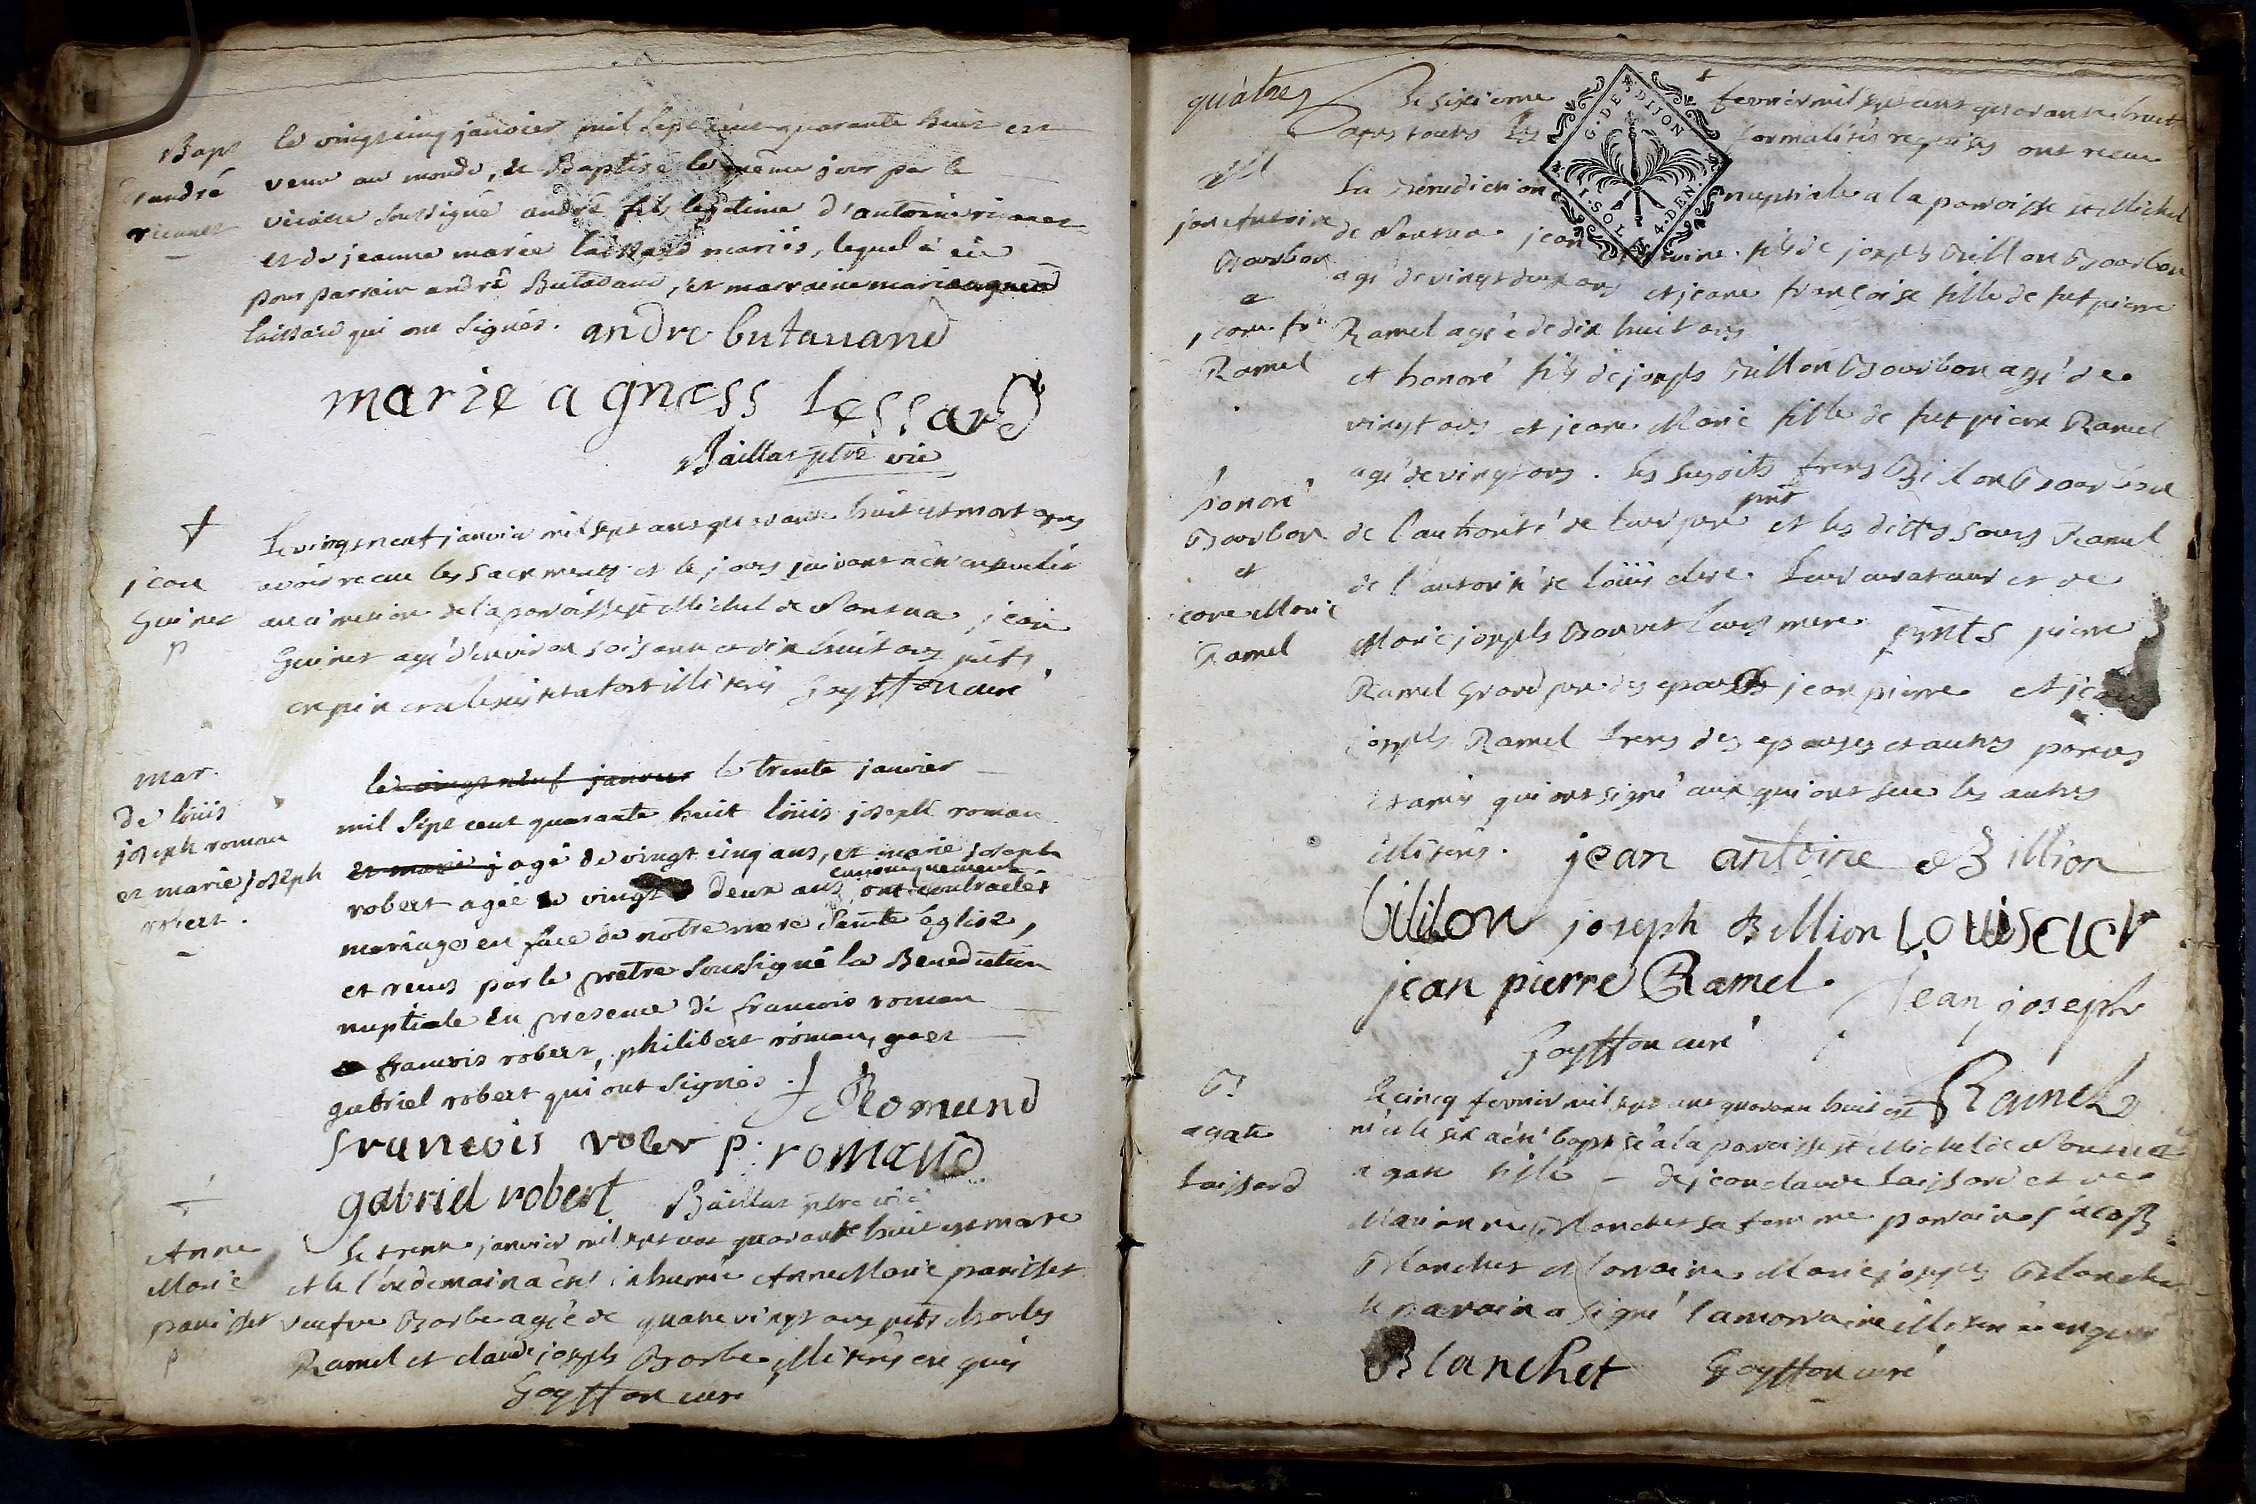 Bapt
d'andré
vicaire soussigné andré fils legitime d'antoine
le vingt cinq janvier mil sept cent quarante huit est
venu au monde, et Baptisé le même jour par le
et de jeanne marie laissard mariés, lequel a eu
pour parrain andré Butavand, et marraine marie agnes
laissard qui ont signés. andre butavand
marie agness lessard
Baillat ptre vic
jean
Guinet
p
Le vingt neuf janvier mil sept cent quarante huit est mort apres
avoir receu les sacrements et le jour suivant a été ensevelit
au cimetiere de la paroisse st Michel de Nantua jean
Guinet agé d'environ soisante et dix huit ans
illiterés Goyffon curé
mar.
de loüis
joseph roman
et marie joseph
robert.
le vingt neuf janvier le trente janvier
mil sept cent quarante huit loüis joseph roman
et marie j agé de vingt cinq ans, et marie joseph
robert agée de vingt deux ans ont canoniquement contractés
mariage en face de notre mere Sainte Eglise,
et reçus par le prêtre soussigné la Benediction
nuptiale en presence de francois roman
francois robert, philibert roman, et
gabriel robert qui ont signés. f Romand
francois rober p. romand
gabriel robert Baillat ptre vic
Anne
Marie
panisset
p
Le trente janvier mil sept cent quarante huit est morte
et le l'endemain a été inhumée Anne Marie panisset
veufve Barbe agée de quatre vingt ans pnts charles
Ramel et claude joseph Barbe illiterés enquis
Goyffon curé
quatre
jean Antoine
Bourbon
et
jeane fr
Ramel
Le sixieme fevrier mil sept cent quarante huit
apres toutes les formalités requises ont receu
La Benediction nuptiale a la paroisse st Michel
de Nantua jean antoine fils de joseph Billon Bourbon
agé de vingt deux ans et jeane françoise fille de fut pierre
Ramel agée de dix huit ans
et honoré fils de joseph Billon Bourbon agé de
vingt ans et jeane Marie fille de fut pierre Ramel
agé de vingt ans. les susdits freres Billon Bourbon
honoré
Bourbon
et
jeane Marie
Ramel
de l'authorité de leur pere pnt et les dittes sœurs Ramel
de l'autorité de loüis clere leur curateur et de
Marie joseph Bonnet leur mere pnts pierre
Ramel grand pere des epouses jean pierre et jean
joseph Ramel freres des epouses et autres parens
et amis qui ont signé ceux qui ont sceu les autres
illiterés. jean antoine Billion
billon joseph Billion Louis cler
jean pierre Ramel. jean joseph
Goyffon curé
Ramel
B
agate
Laissard
Le cinq fevrier mil sept cent quarante huit est
née et le six a été baptisé a la paroisse st Michel de Nantua
agate fille de jean claude Laissard et de
Marianne Blanchet sa femme parrain jacob
Blanchet et marraine Marie joseph Blanchet
le parrain a signé la marraine illiteré enquise
Blanchet Goyffon curé
G. DE DIJON
2. SOLS 4. DEN.